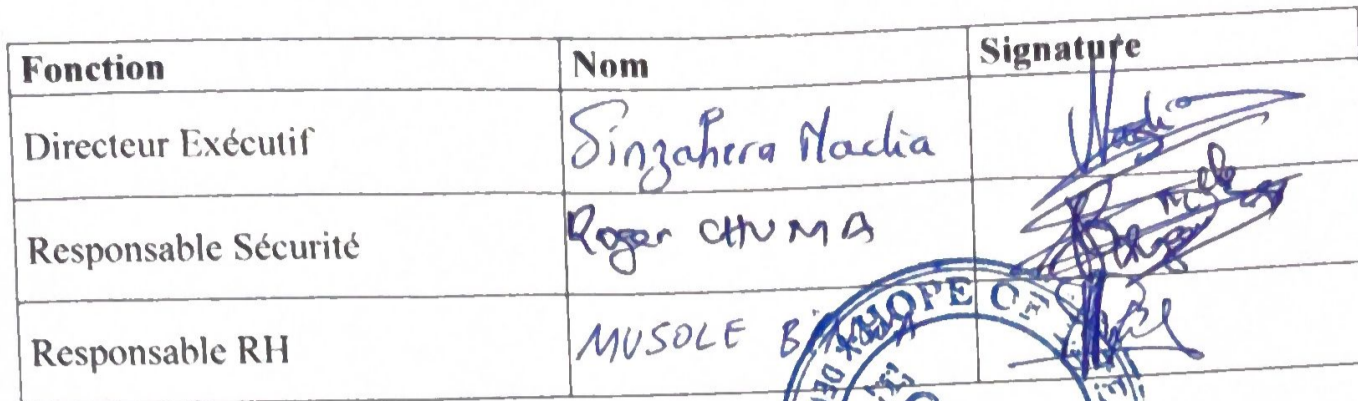 Fonction Nom Signature
Directeur Exécutif Sinzahera Nadia
Responsable Sécurité Roger CHUMA
Responsable RH MUSOLE
HOPE OF